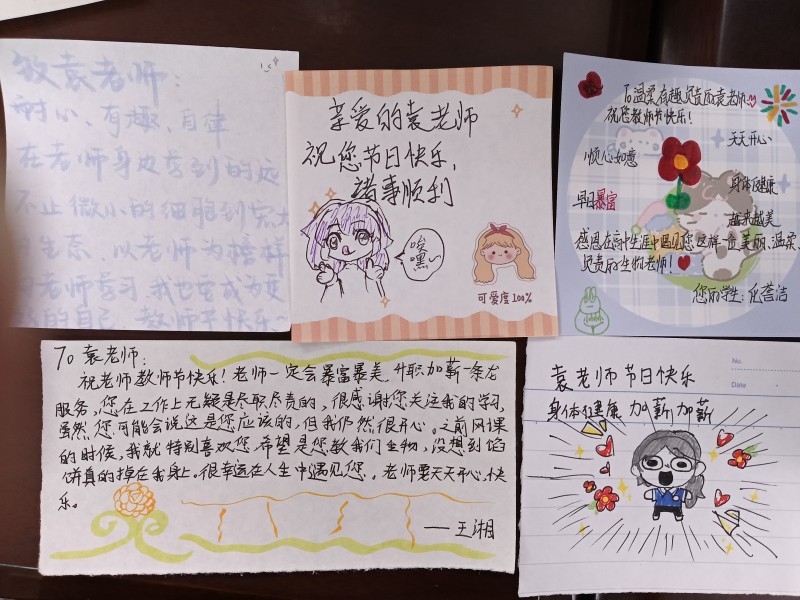 致袁老师：
耐心、有趣、自律
在老师身边学到的远
不止微小的细胞到宏大
生态，以老师为榜样
向老师学习，我也会成为更
好的自己 教师节快乐~
亲爱的袁老师
祝您节日快乐，
诸事顺利
唉嘿~
可爱度100%
To温柔有趣负责的袁老师
祝您教师节快乐！
天天开心
顺心如意
身体健康
早日暴富
越来越美
感恩在高中生涯中遇见您这样一位美丽、温柔、
负责的生物老师！
您的学生：
To 袁老师：
祝老师教师节快乐！老师一定会暴富暴美，升职加薪一条龙
服务，您在工作上无疑是尽职尽责的，很感谢您关注我的学习，
虽然您可能会说这是您应该的，但我仍然很开心。之前网课
的时候，我就特别喜欢您，希望是您教我们生物，没想到馅
饼真的掉在我身上。很幸运在人生中遇见您。老师要天天开心、快
乐。
——王湘
No.
Date
袁老师节日快乐
身体健康 加薪加薪